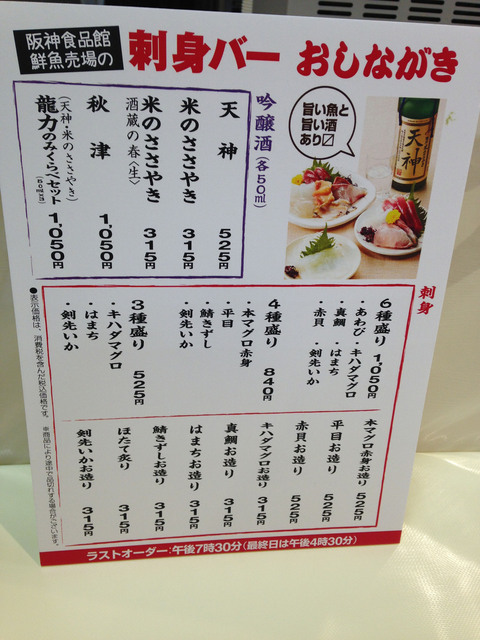 阪神食品館
鮮魚売場の
刺身バー おしながき
旨い魚と
旨い酒
あり〼
天神
吟醸酒(各50ml)
天神 525円
米のささやき 315円
米のささやき 315円
酒蔵の春〈生〉
秋津 1,050円
龍力のみくらべセット 1,050円
(天神・米のささやき)
刺身
6種盛り 1,050円
・あわび ・キハダマグロ
・真鯛 ・はまち
・赤貝 ・剣先いか
4種盛り 840円
・本マグロ赤身
・平目
・鯖きずし
・剣先いか
3種盛り 525円
・キハダマグロ
・はまち
・剣先いか
本マグロ赤身お造り 525円
平目お造り 525円
赤貝お造り 525円
キハダマグロお造り 315円
真鯛お造り 315円
はまちお造り 315円
鯖きずしお造り 315円
ほたて炙り 315円
剣先いかお造り 315円
●表示価格は、消費税を含んだ税込価格です。 ※商品により途中で品切れする場合がございます。
ラストオーダー:午後7時30分(最終日は午後4時30分)